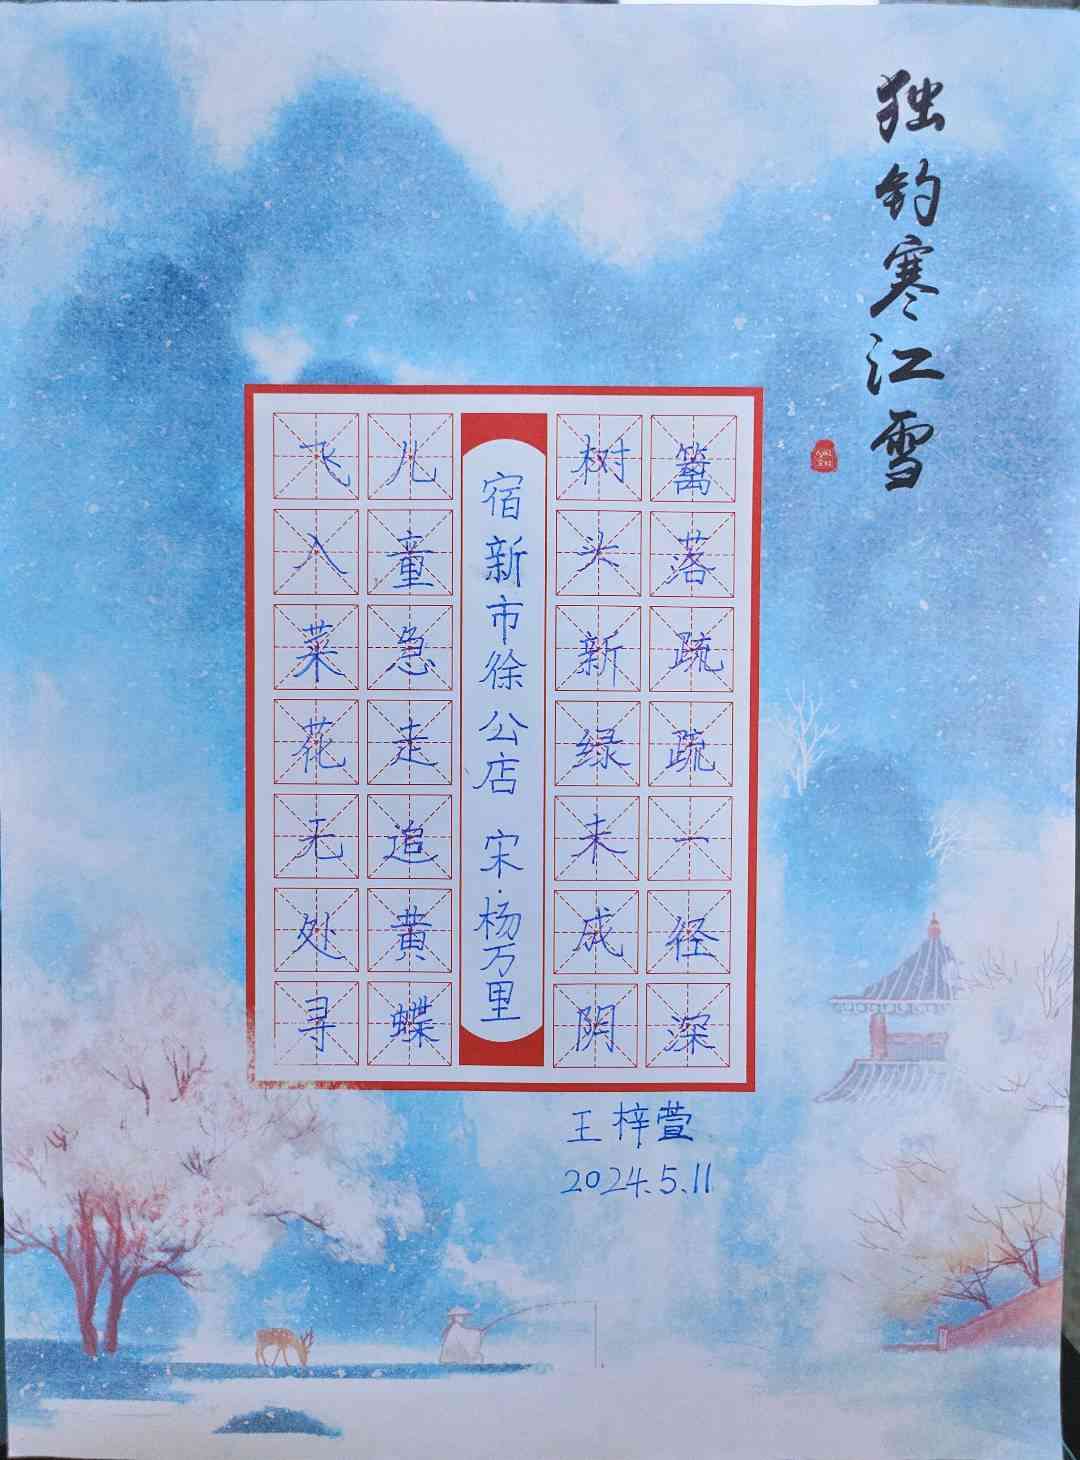 独钓寒江雪
篱落疏疏一径深
树头新绿未成阴
宿新市徐公店 宋·杨万里
儿童急走追黄蝶
飞入菜花无处寻
王梓萱
2024.5.11